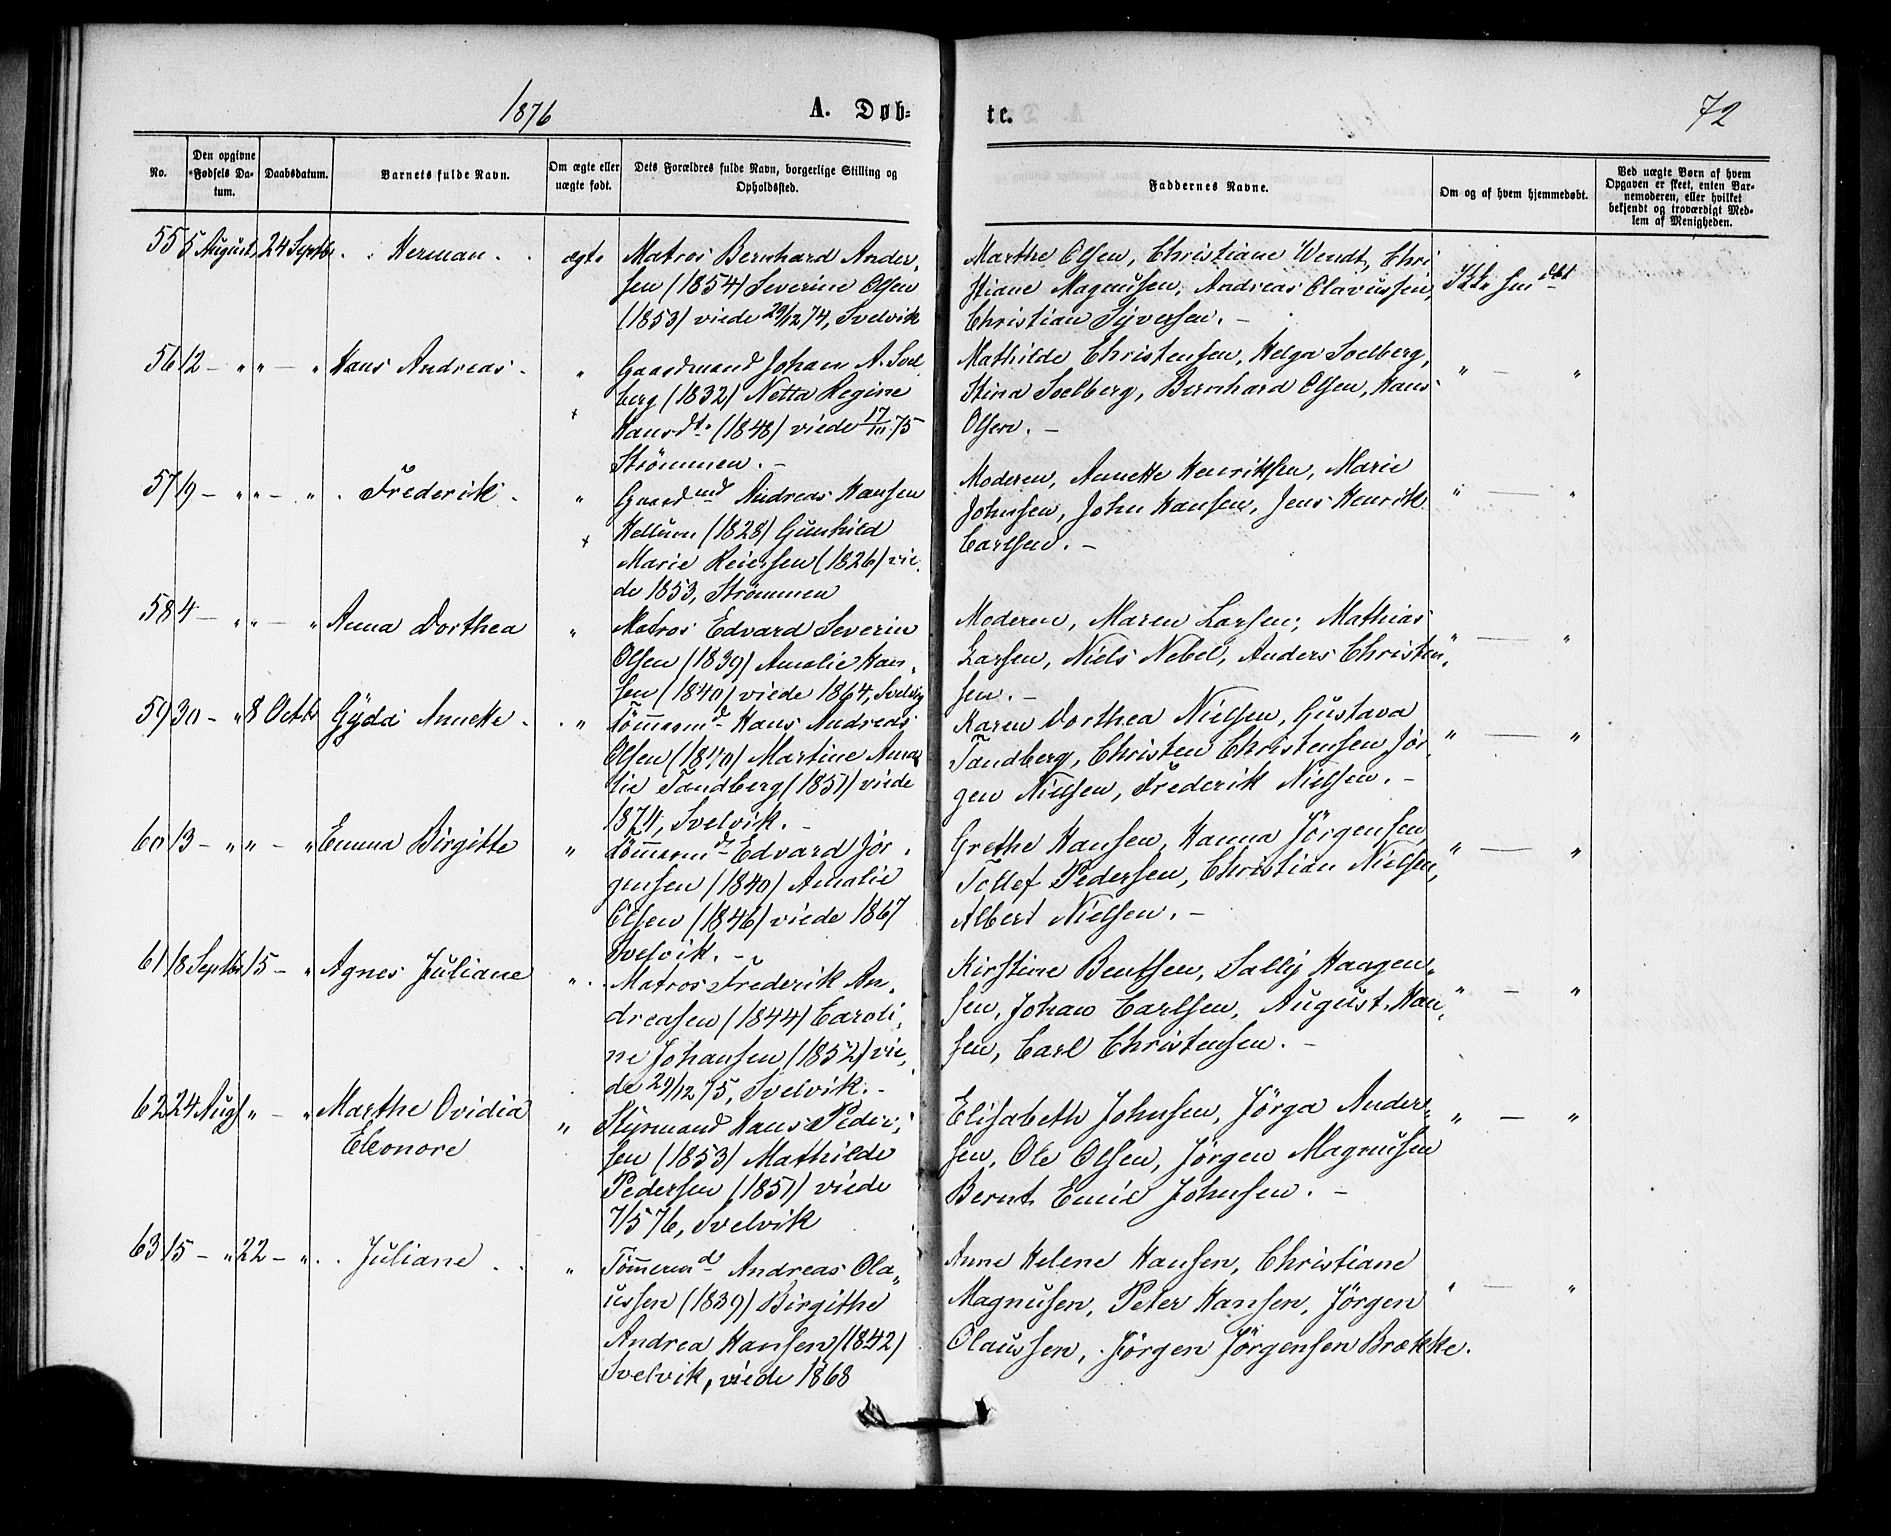 1876
A. Døb-
te.
72
No.
Den opgivne Fødsels Da-tum.
Daabsdatum.
Barnets fulde Navn.
Om ægte eller uægte født.
Dets Forældres fulde Navn, borgerlige Stilling og Opholdssted.
Faddernes Navne.
Om og af hvem hjemmedøbt.
Ved uægte Børn af hvem Opgaven er skeet, enten Bar-nemoderen, eller hvilket bekjendt og troværdigt Med-lem af Menigheden.
55 5 August 24 Septbr. Herman. ægte
Matros Bernhard Ander-
sen (1854) Severine Olsen
(1853) viede 29/12 74, Svelvik
Marthe Olsen, Christiane Wendt, Chri
stiane Magnussen, Andreas Olavussen,
Christian Syversen. -
Ikke hmdbt
56 12 - " " - " Hans Andreas. "
Gaardmand Johan A. Svel
berg (1832) Netta Regine
Hansdt. (1848) viede 17/11 75
Strømmen. -
Mathilde Christensen, Helga Soelberg,
Stina Soelberg, Bernhard Olsen, Hans
Olsen. -
" - "
57 19 - " " - " Frederik. "
Gaardmd Andreas Hansen
Hellum (1828) Gunhild
Marie Reiersen (1826) vie-
de 1853, Strømmen
Moderen, Annette Henriksen, Marie
Johnsen, John Hansen, Jens Henrik
Carlsen. -
" - "
58 4 - " " - " Anna Dorthea "
Matros Edvard Severin
Olsen (1839) Amalie Han-
sen (1840) viede 1864, Svelvig
Moderen, Maren Larsen, Mathias
Larsen, Niels Nebel, Anders Christen-
sen. -
" - "
59 30 - " 8 Octbr Gyda Annette. "
Tømmermd Hans Andreas
Olsen (1840) Martine Ama
lie Tandberg (1851) viede
1874, Svelvik. -
Karen Dorthea Nielsen, Gustava
Tandberg, Christen Christensen Jør
gen Nielsen, Frederik Nielsen. -
" - "
60 13 - " " - " Emma Birgitte "
Tømmermd Edvard Jør-
gensen (1840) Amalie
Olsen (1846) viede 1867
Svelvik. -
Grethe Hansen, Hanna Jørgensen,
Tollef Pedersen, Christian Nielsen,
Albert Nielsen. -
" - "
61 18 Septbr 15 - " Agnes Juliane "
Matros Frederik An-
dreasen (1844) Caroli-
ne Johansen (1852) vie-
de 29/12 75, Svelvik. -
Kirstine Bentsen, Sally Haagen-
sen, Johan Carlsen, August Han-
sen, Carl Christensen. -
" - "
62 24 Augs " - " Marthe Ovidia "
Eleonore
Styrmand Hans Peder-
sen (1853) Mathilde
Pedersen (1851) viede
7/5 76, Svelvik
Elisabeth Johnsen, Jørga Ander-
sen, Ole Olsen, Jørgen Magnusen
Bernt Emil Johnsen. -
" - "
63 15 - " 22 - " Juliane. "
Tømmermd Andreas Ola-
ussen (1839) Birgithe
Andrea Hansen (1842)
Svelvik, viede 1868
Anne Helene Hansen, Christiane
Magnusen, Peter Hansen, Jørgen
Olaussen, Jørgen Jørgensen Brække.
" - "